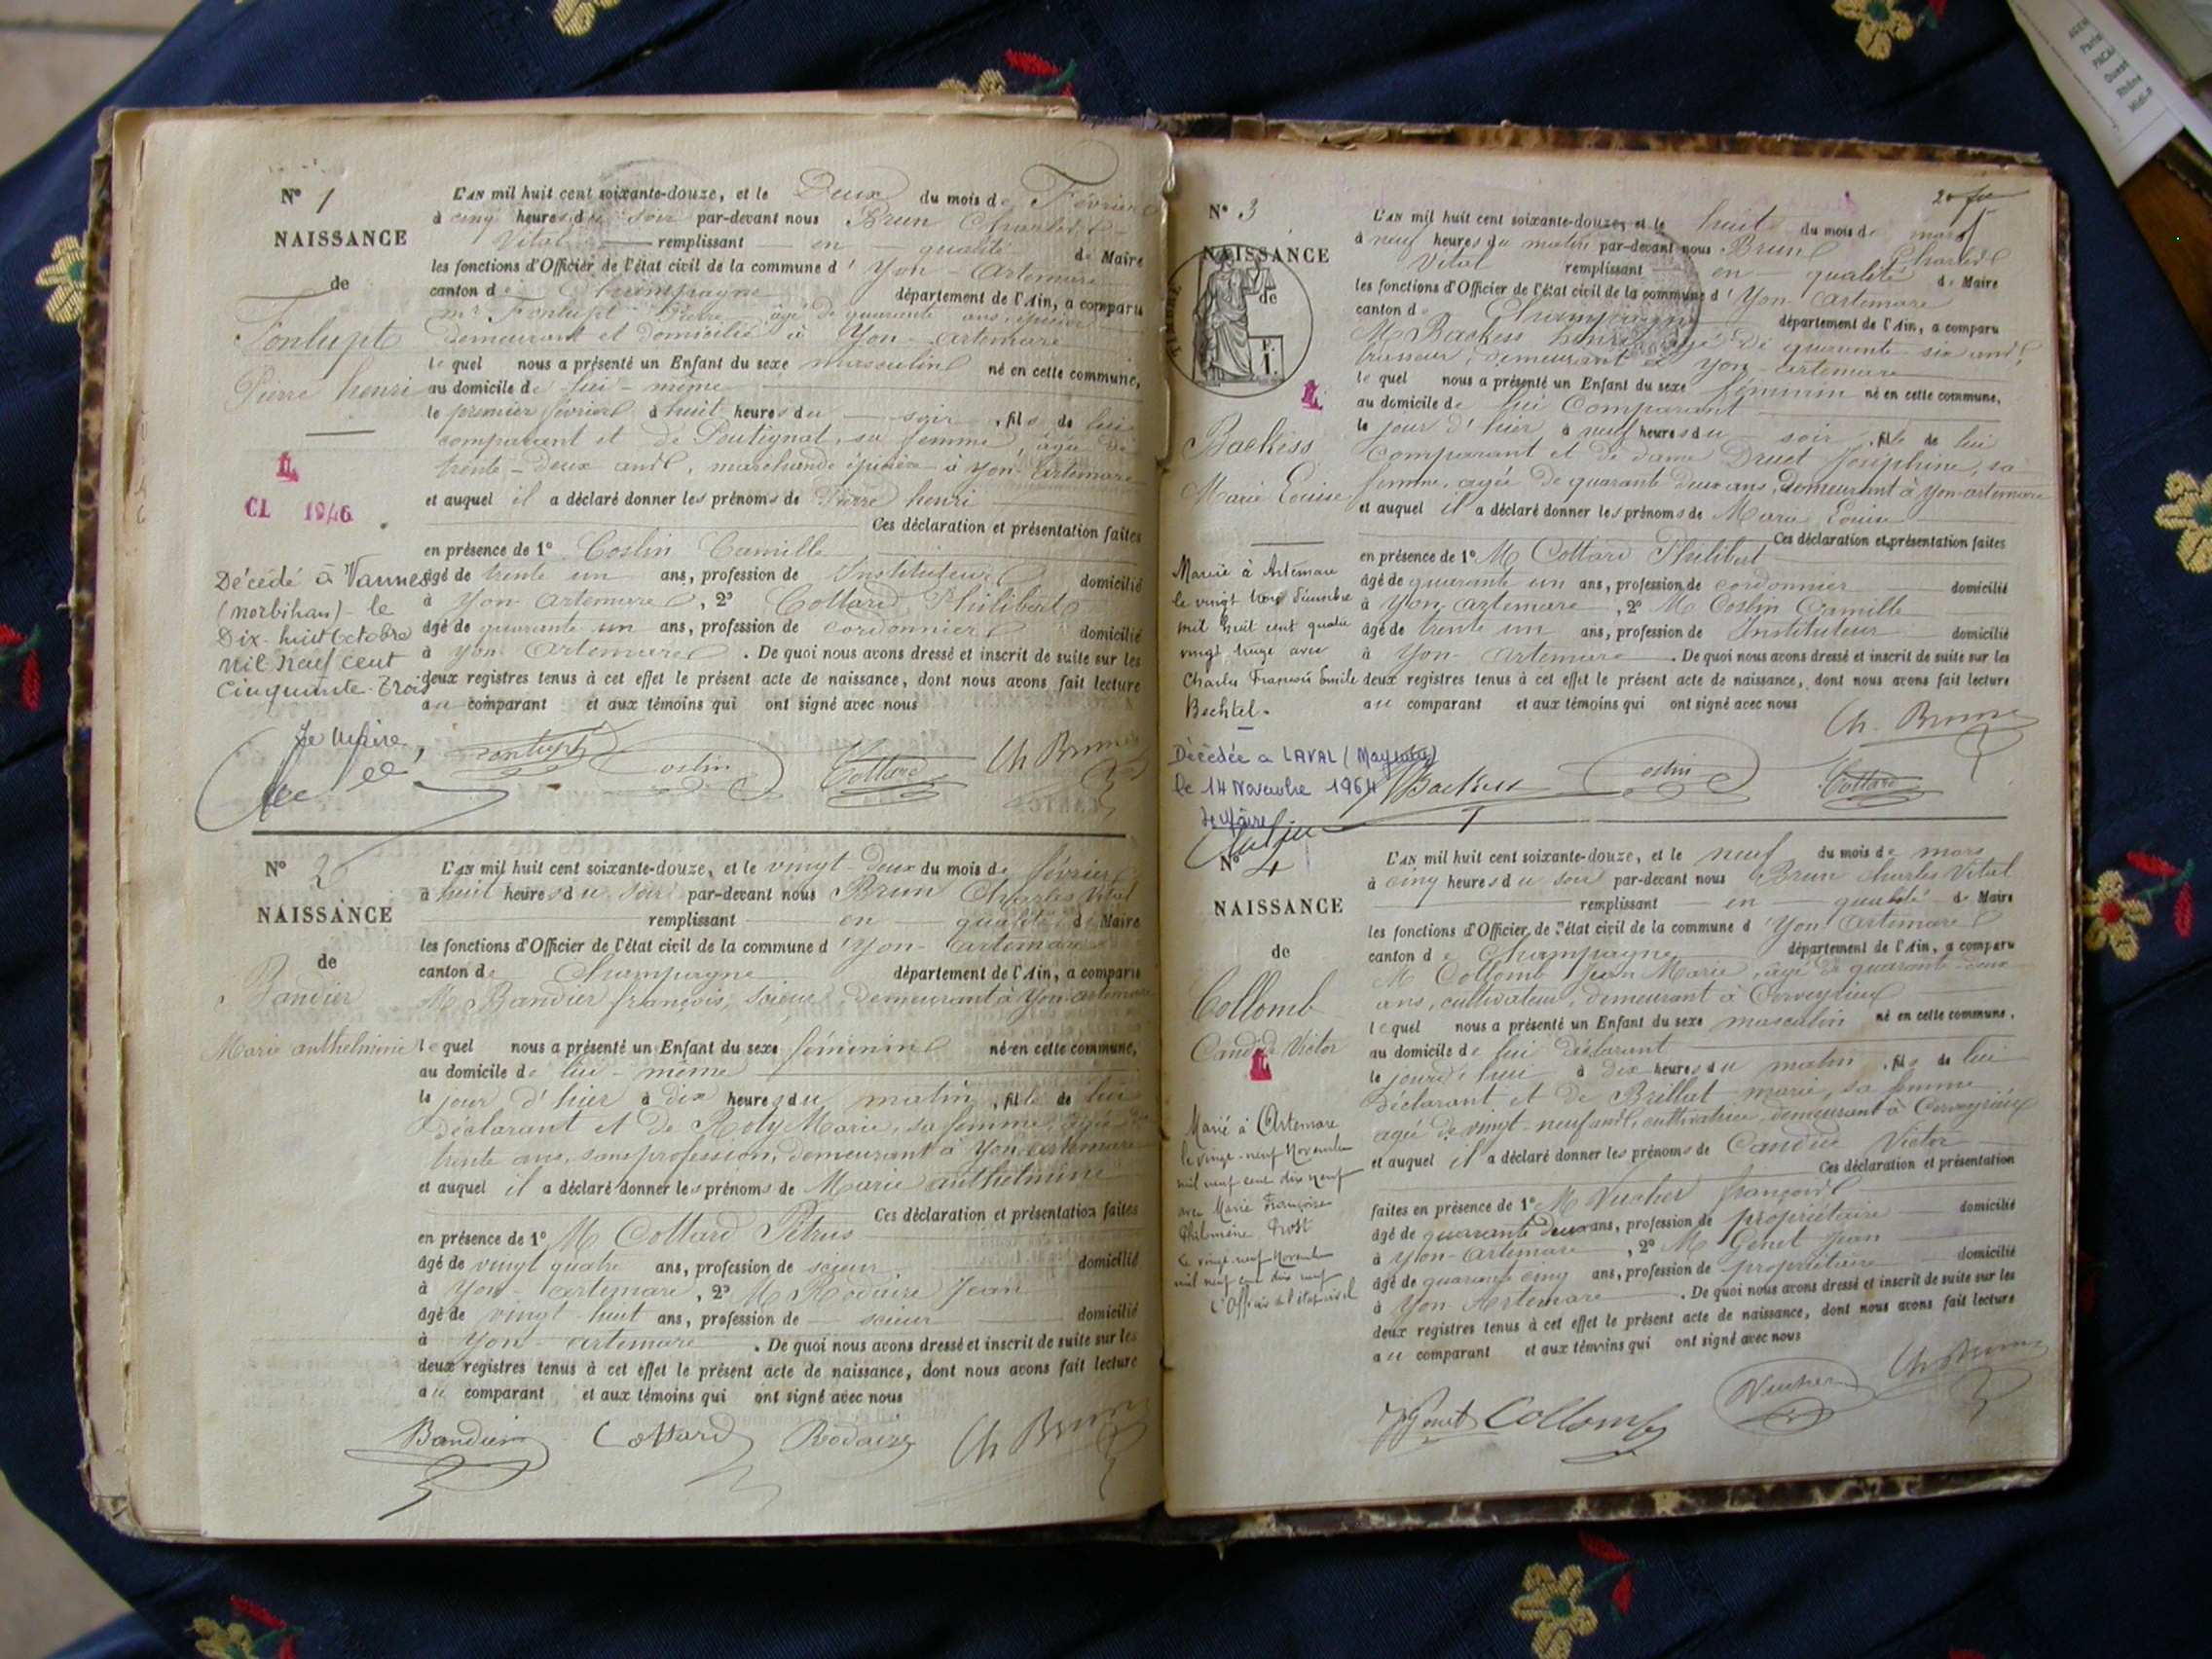 N° 1
NAISSANCE
de
Fontupt
Pierre henri
CL 1946
Décédé à Vannes
(Morbihan) le
Dix-huit Octobre
mil neuf cent
Cinquante-Trois
Le Maire,
L'AN mil huit cent soixante-douze, et le Deux du mois de Février
à cinq heures du soir par-devant nous Brun Charles
Vital remplissant en qualité de Maire
les fonctions d'Officier de l'état civil de la commune d'Yon-Artemare
canton de Champagne département de l'Ain, a comparu
mr Fontupt Pierre âgé de quarante ans, épicier
demeurant et domicilié à Yon-artemare
lequel nous a présenté un Enfant du sexe masculin né en cette commune,
au domicile de lui-même
le premier février à huit heures du soir, fils de lui
comparant et de Poutignat, sa femme, âgée de
trente-deux ans, marchande épicière à Yon-Artemare
et auquel il a déclaré donner les prénoms de Pierre henri
Ces déclaration et présentation faites
en présence de 1° Coslin Camille
âgé de trente un ans, profession de Instituteur domicilié
à Yon-Artemare, 2° Cottard Philibert
âgé de quarante un ans, profession de cordonnier domicilié
à Yon Artemare. De quoi nous avons dressé et inscrit de suite sur les
deux registres tenus à cet effet le présent acte de naissance, dont nous avons fait lecture
au comparant et aux témoins qui ont signé avec nous
Fontupt Coslin Cottard Ch Brun
N° 2
NAISSANCE
de
Bandier
Marie anthelmine
L'AN mil huit cent soixante-douze, et le vingt-deux du mois de février
à huit heures du soir par-devant nous Brun Charles Vital
remplissant en qualité de Maire
les fonctions d'Officier de l'état civil de la commune d'Yon-Artemare
canton de Champagne département de l'Ain, a comparu
M Bandier françois, scieur, demeurant à Yon-artemare
lequel nous a présenté un Enfant du sexe féminin né en cette commune,
au domicile de lui-même
le jour d'hier à dix heures du matin, fille de lui
déclarant et de Roty Marie, sa femme, âgée de
trente ans, sans profession, demeurant à Yon artemare
et auquel il a déclaré donner les prénoms de Marie anthelmine
Ces déclaration et présentation faites
en présence de 1° M Cottard Pétrus
âgé de vingt quatre ans, profession de scieur domicilié
à Yon-artemare, 2° M Rodaire Jean
âgé de vingt-huit ans, profession de scieur domicilié
à Yon-artemare. De quoi nous avons dressé et inscrit de suite sur les
deux registres tenus à cet effet le présent acte de naissance, dont nous avons fait lecture
au comparant et aux témoins qui ont signé avec nous
Bandier Cottard Rodaire Ch Brun
N° 3
NAISSANCE
de
TIMBRE
F.
1.
Backess
Marie Louise
Mariée à Artemare
le vingt trois Décembre
mil huit cent quatre
vingt treize avec
Charles François Emile
Bechtel.
Décédée a LAVAL (Mayenne)
le 14 Novembre 1964
Le Maire
L'AN mil huit cent soixante-douze, et le huit du mois de mars
à neuf heures du matin par-devant nous Brun Charles
Vital remplissant en qualité de Maire
les fonctions d'Officier de l'état civil de la commune d'Yon-Artemare
canton de Champagne département de l'Ain, a comparu
M Backess henri, âgé de quarante-six ans,
brasseur, demeurant à Yon-artemare
lequel nous a présenté un Enfant du sexe féminin né en cette commune,
au domicile de lui Comparant
le jour d'hier à neuf heures du soir, fille de lui
Comparant et de dame Druet Joséphine, sa
femme, agée de quarante deux ans, demeurant à Yon-artemare
et auquel il a déclaré donner les prénoms de Marie Louise
Ces déclaration et présentation faites
en présence de 1° M Cottard Philibert
âgé de quarante un ans, profession de cordonnier domicilié
à Yon artemare, 2° M Coslin Camille
âgé de trente un ans, profession de Instituteur domicilié
à Yon-Artemare. De quoi nous avons dressé et inscrit de suite sur les
deux registres tenus à cet effet le présent acte de naissance, dont nous avons fait lecture
au comparant et aux témoins qui ont signé avec nous
Ch. Brun
Backess Coslin Cottard
N° 4
NAISSANCE
de
Collomb
Candide Victor
Marié à Artemare
le vingt-neuf Novembre
mil neuf cent dix neuf
avec Marie Françoise
Philomène Prost
Le vingt-neuf Novembre
mil neuf cent dix neuf
L'Officier de l'état civil
L'AN mil huit cent soixante-douze, et le neuf du mois de mars
à cinq heures du soir par-devant nous Brun Charles Vital
remplissant en qualité de Maire
les fonctions d'Officier de l'état civil de la commune d'Yon-Artemare
canton de Champagne département de l'Ain, a comparu
M Collomb Jean Marie, âgé de quarante-deux
ans, cultivateur, demeurant à Cerveyrieu
lequel nous a présenté un Enfant du sexe masculin né en cette commune,
au domicile de lui déclarant
le jourd'hui à dix heures du matin, fils de lui
déclarant et de Brillat marie, sa femme
agée de vingt-neuf ans, cultivatrice demeurant à Cerveyrieu
et auquel il a déclaré donner les prénoms de Candide Victor
Ces déclaration et présentation
faites en présence de 1° M Vucher françois
âgé de quarante deux ans, profession de propriétaire domicilié
à Yon-Artemare, 2° M Genet Jean
âgé de quarante cinq ans, profession de propriétaire domicilié
à Yon Artemare. De quoi nous avons dressé et inscrit de suite sur les
deux registres tenus à cet effet le présent acte de naissance, dont nous avons fait lecture
au comparant et aux témoins qui ont signé avec nous
Genet Collomb Vucher Ch Brun